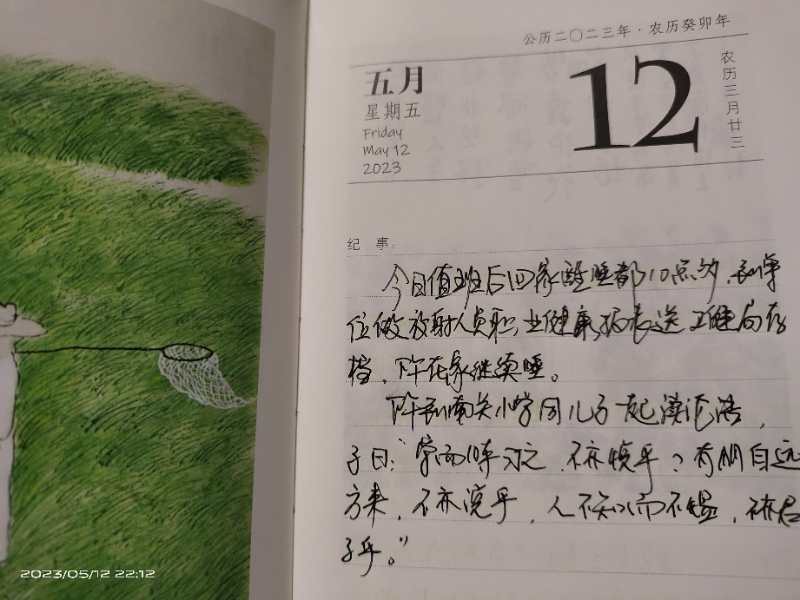 公历二〇二三年·农历癸卯年
五月
星期五
Friday
May 12
2023
12
农历三月廿三
纪 事:
今日值班后回家醒睡都10点多，到单
位做放射人员职业健康报表送卫健局存
档，下午在家继续睡。
下午到南关小学同儿子一起读论语，
子曰："学而时习之，不亦悦乎？有朋自远
方来，不亦说乎，人不知而不愠，不亦君
子乎。"
2023/05/12 22:12